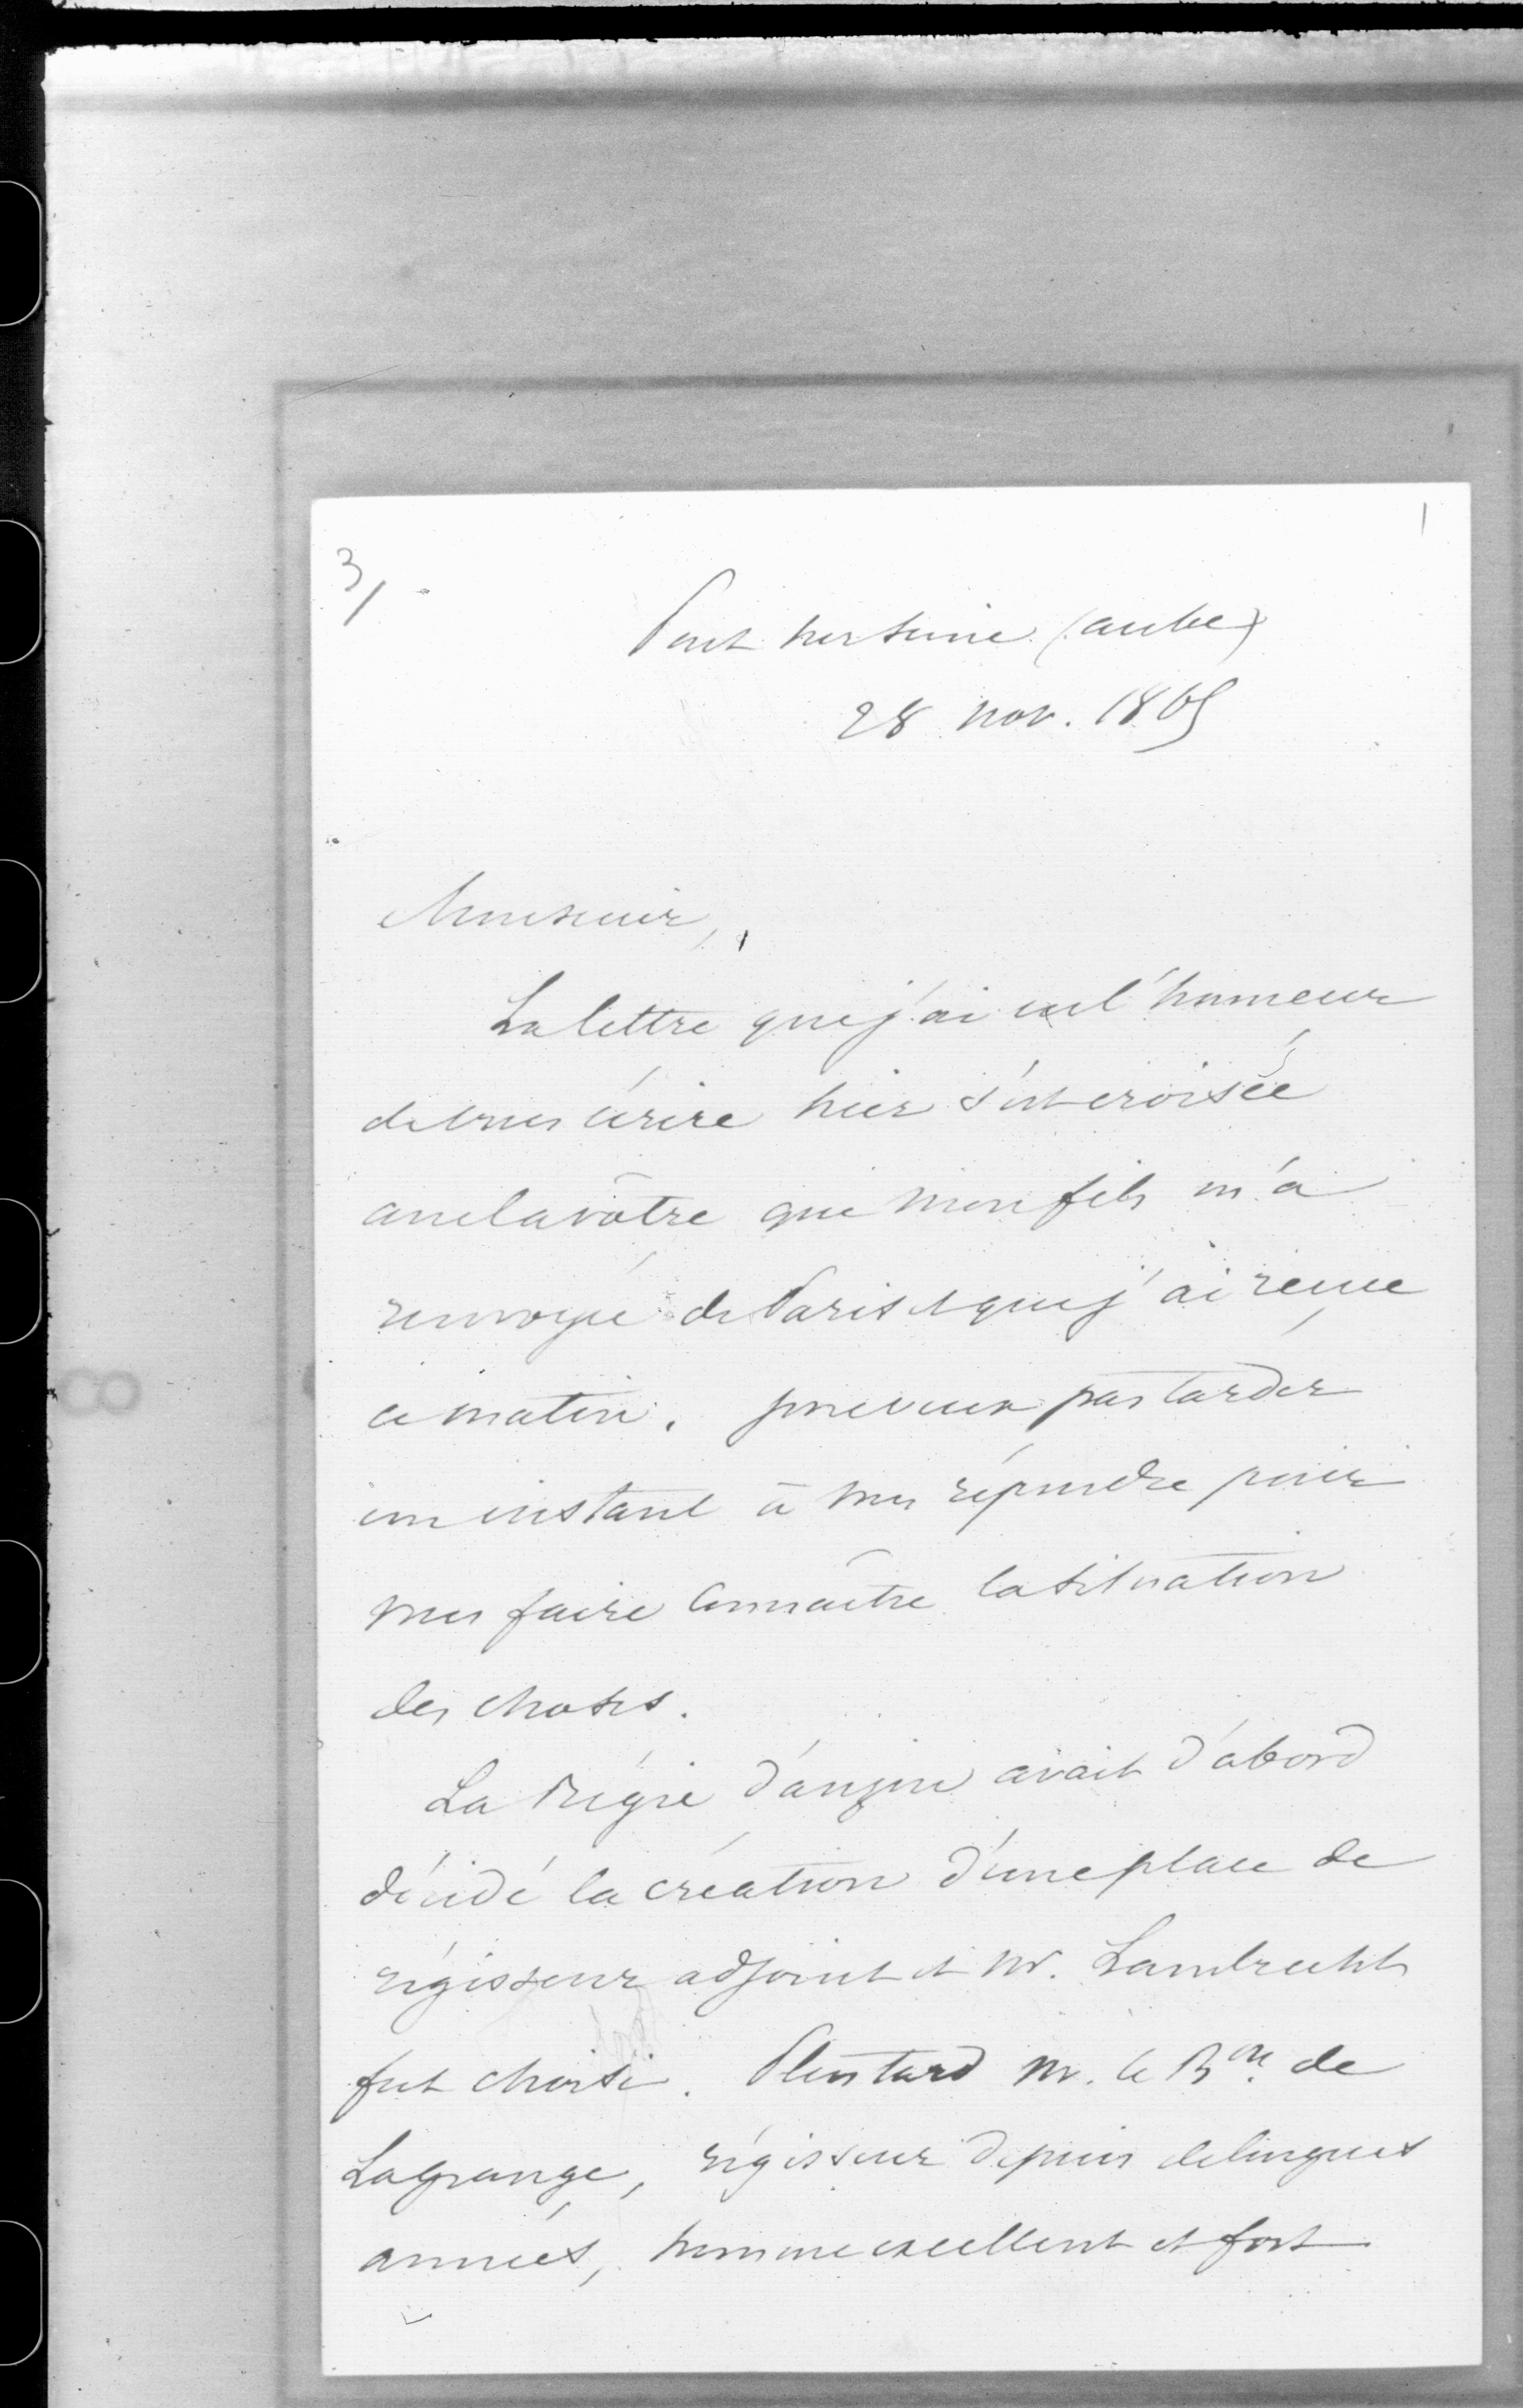 3/
1
Pont sur Seine (aube)
28 nov. 1865
Monsieur,
La lettre que j'ai eu l'honneur
de vous écrire hier s'est croisée
avec la vôtre que mon fils m'a
renvoyée de Paris et que j'ai reçue
ce matin. je ne veux pas tarder
un instant à vous répondre pour
vous faire connaître la situation
des choses.
La Régie d'anzin avait d'abord
décidé la création d'une place de
régisseur adjoint et Mr. Lambrecht
fut choisi. Plus tard M. le Bon. de
Lagrange, régisseur depuis de longues
années, homme excellent et fort